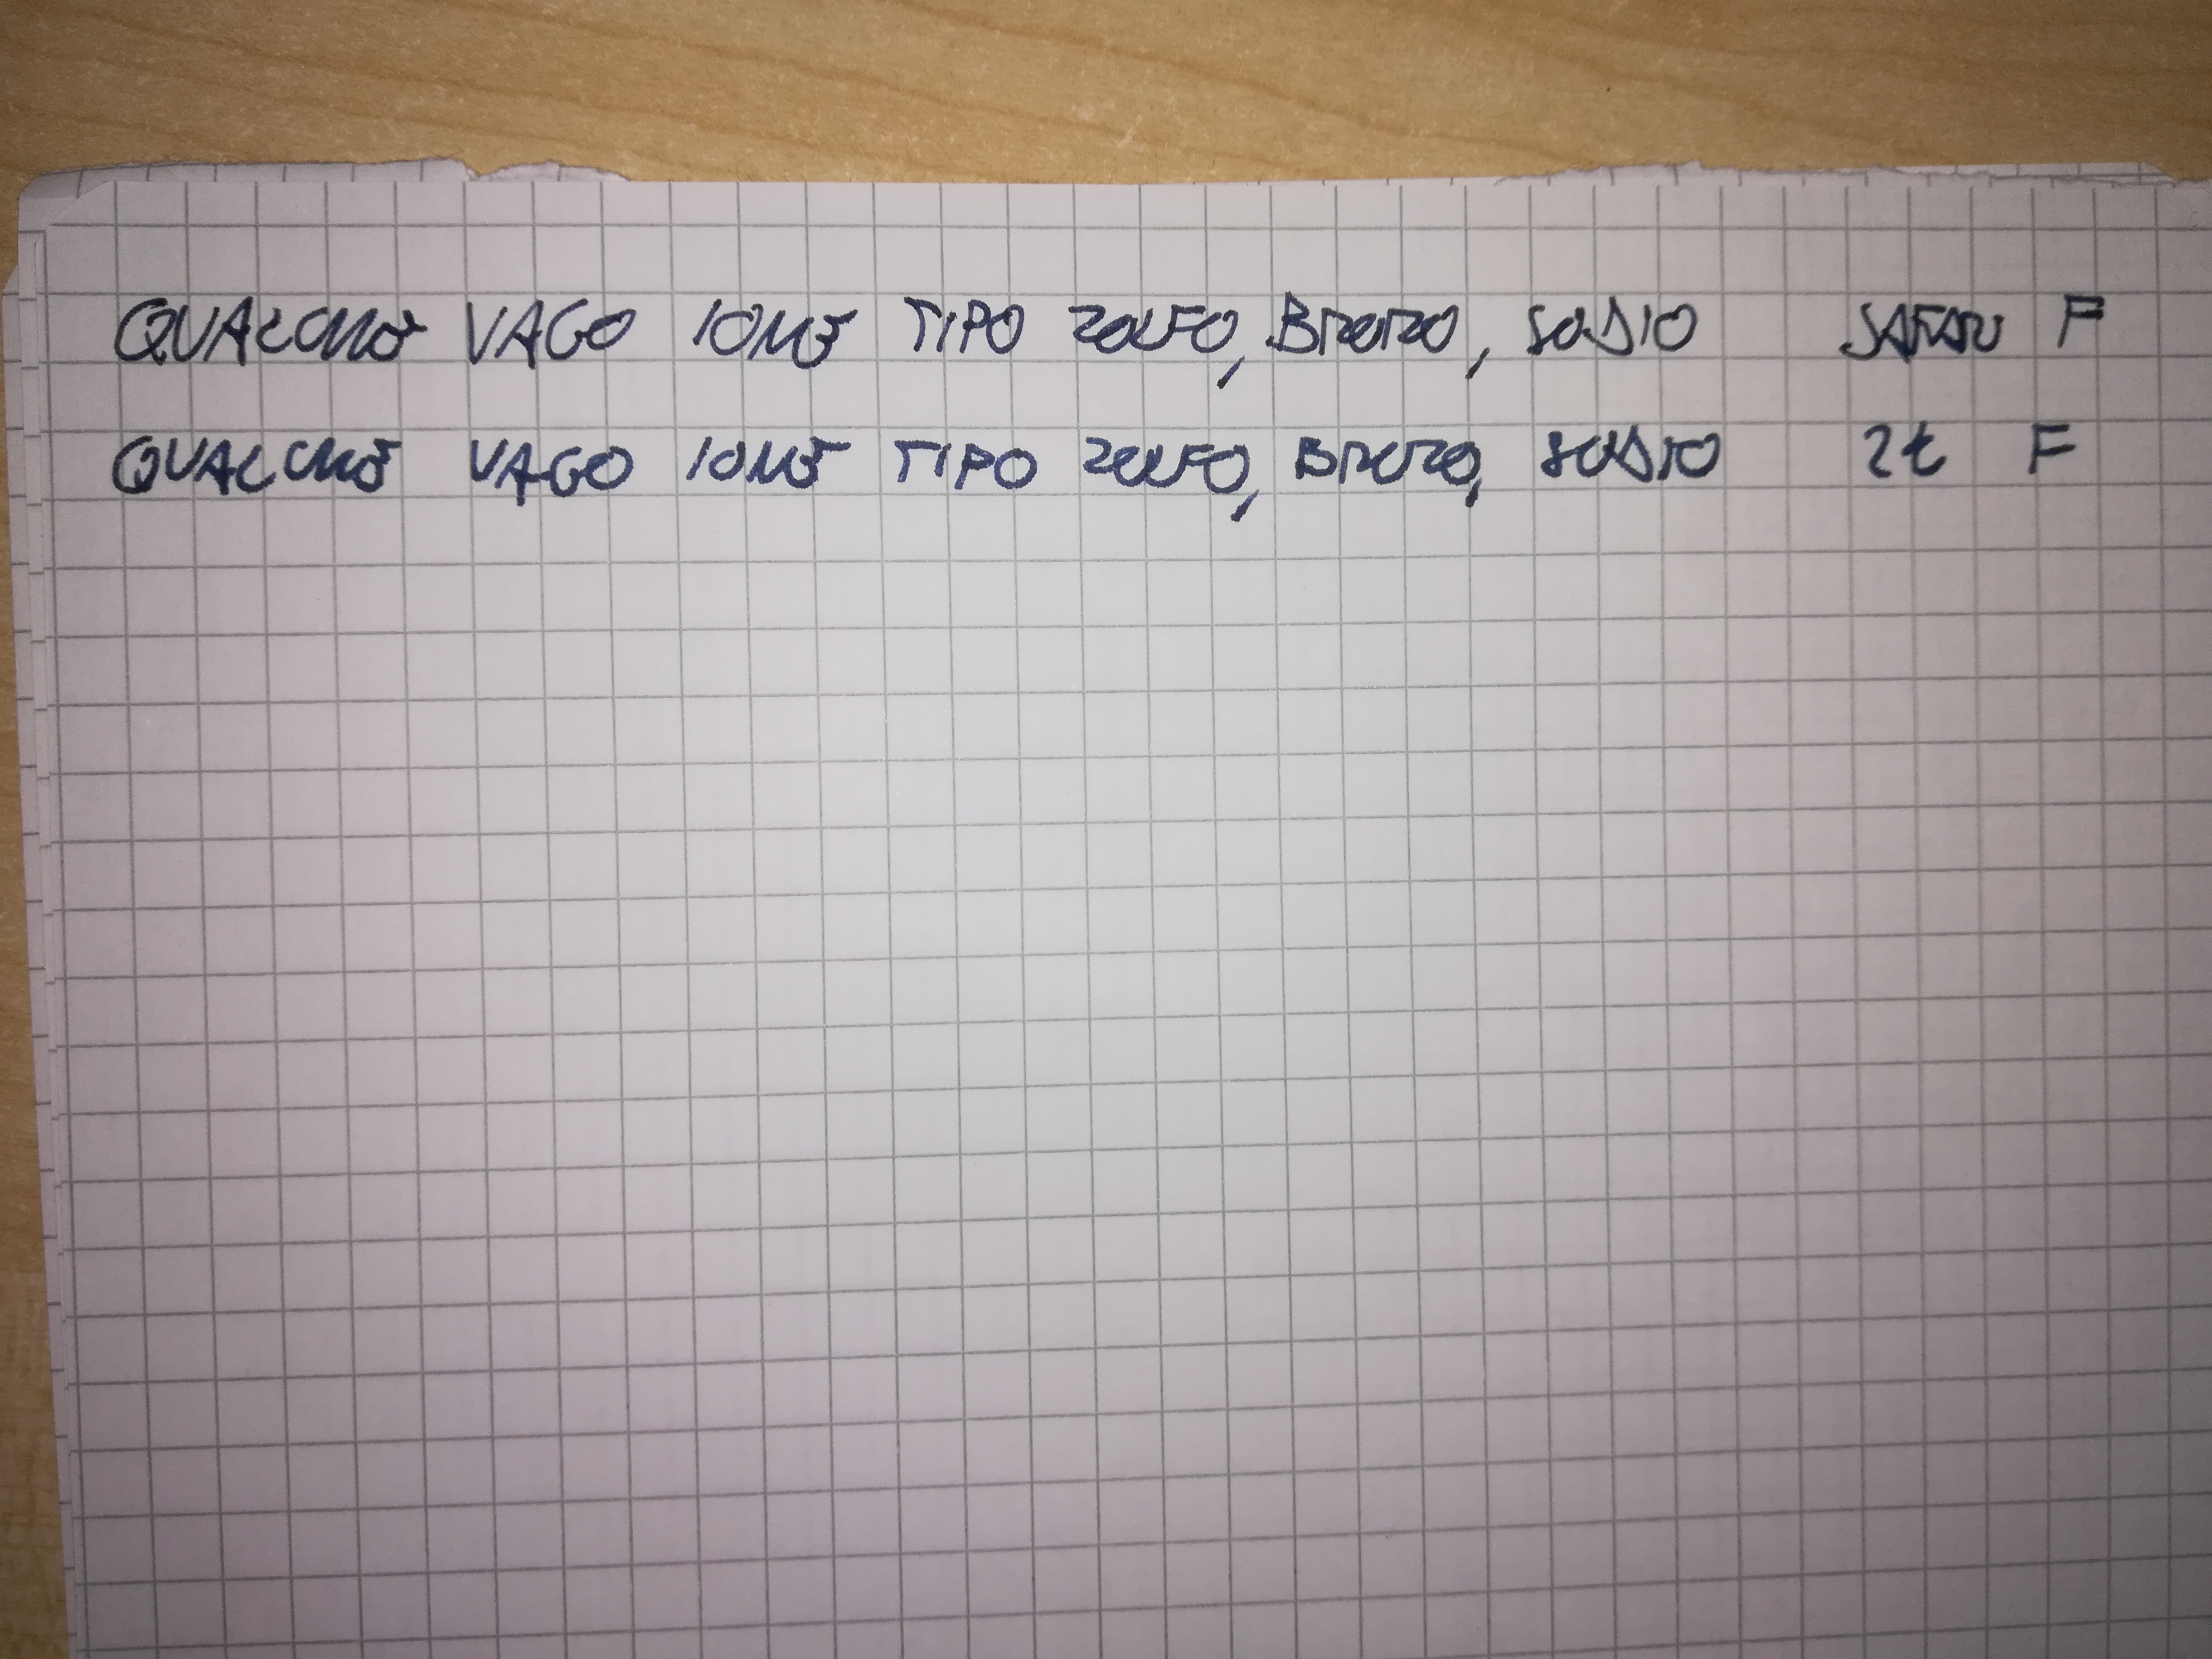 QUALCHE VAGO IONE TIPO ZOLFO, BROMO, SODIO SAFARI F
QUALCHE VAGO IONE TIPO ZOLFO, BROMO, SODIO 2t F